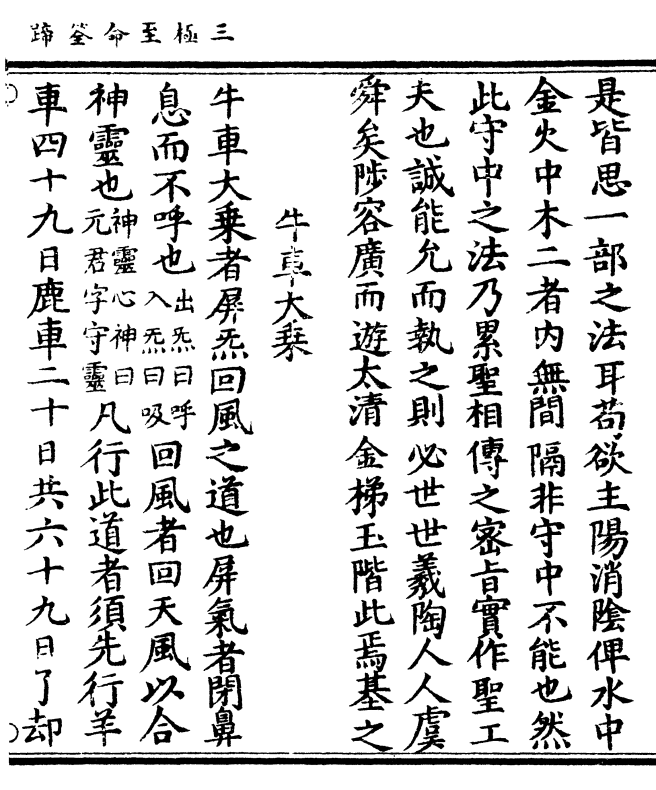 三極至命筌蹄
是皆思一部之法耳苟欲主陽消陰俾水中
金火中木二者內無間隔非守中不能也然
此守中之法乃累聖相傳之密旨實作聖工
夫也誠能允而執之則必世世羲陶人人虞
舜矣陟容廣而遊太清金梯玉階此焉基之
牛車大乗
牛車大乗者屏炁回風之道也屏氣者閉鼻
息而不呼也出炁曰呼入炁曰吸回風者回天風以合
神靈也神靈心神曰元君字守靈凡行此道者須先行羊
車四十九日鹿車二十日共六十九日了却